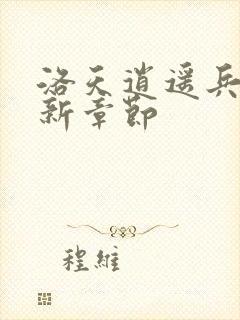 洛天逍遥兵
新章節
程維